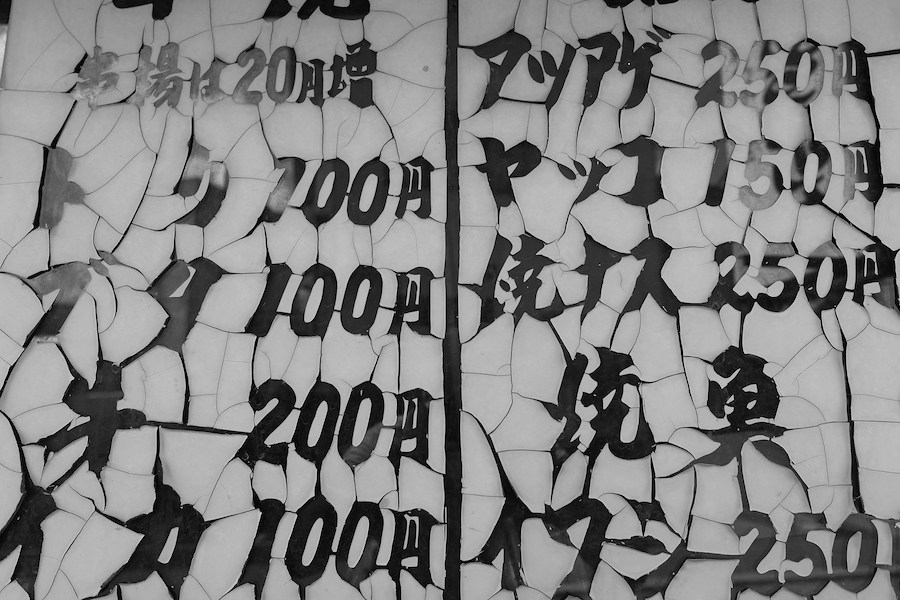 串揚は20円増
トリ 100円
ブタ 100円
牛 200円
イカ 100円
アツアゲ 250円
ヤッコ 150円
焼ナス 250円
焼魚
イワシ 250